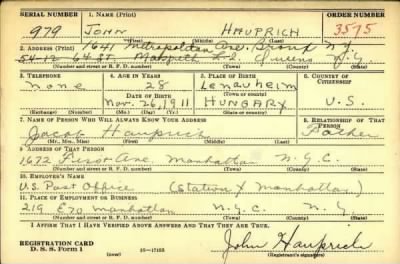 SERIAL NUMBER 1. NAME (Print) ORDER NUMBER
979 JOHN HAUPRICH 3575
1641 Metropolitan Ave. Bronx N.Y.
2. ADDRESS (Print)
54-12 64 ST Maspeth L.I. Queens N.Y.
(Number and street or R. F. D. number) (Town) (County) (State)
3. TELEPHONE 4. AGE IN YEARS 5. PLACE OF BIRTH 6. COUNTRY OF CITIZENSHIP
None 28 Lenauheim
DATE OF BIRTH (Town or county)
Nov. 26, 1911 HUNGARY U.S.
(Exchange) (Number) (Mo.) (Day) (Yr.) (State or country)
7. NAME OF PERSON WHO WILL ALWAYS KNOW YOUR ADDRESS 8. RELATIONSHIP OF THAT PERSON
Jacob Hauprich Father
(Mr., Mrs., Miss) (First) (Middle) (Last)
9. ADDRESS OF THAT PERSON
1672 Ave. Manhattan N.Y.C.
(Number and street or R. F. D. number) (Town) (County) (State)
10. EMPLOYER'S NAME
U.S. Post Office (Station Y Manhattan)
11. PLACE OF EMPLOYMENT OR BUSINESS
219 E 70 Manhattan N.Y.C. N.Y.
(Number and street or R. F. D. number) (Town) (County) (State)
I AFFIRM THAT I HAVE VERIFIED ABOVE ANSWERS AND THAT THEY ARE TRUE.
REGISTRATION CARD
D. S. S. Form 1 (over) John Hauprich
(Registrant's signature)